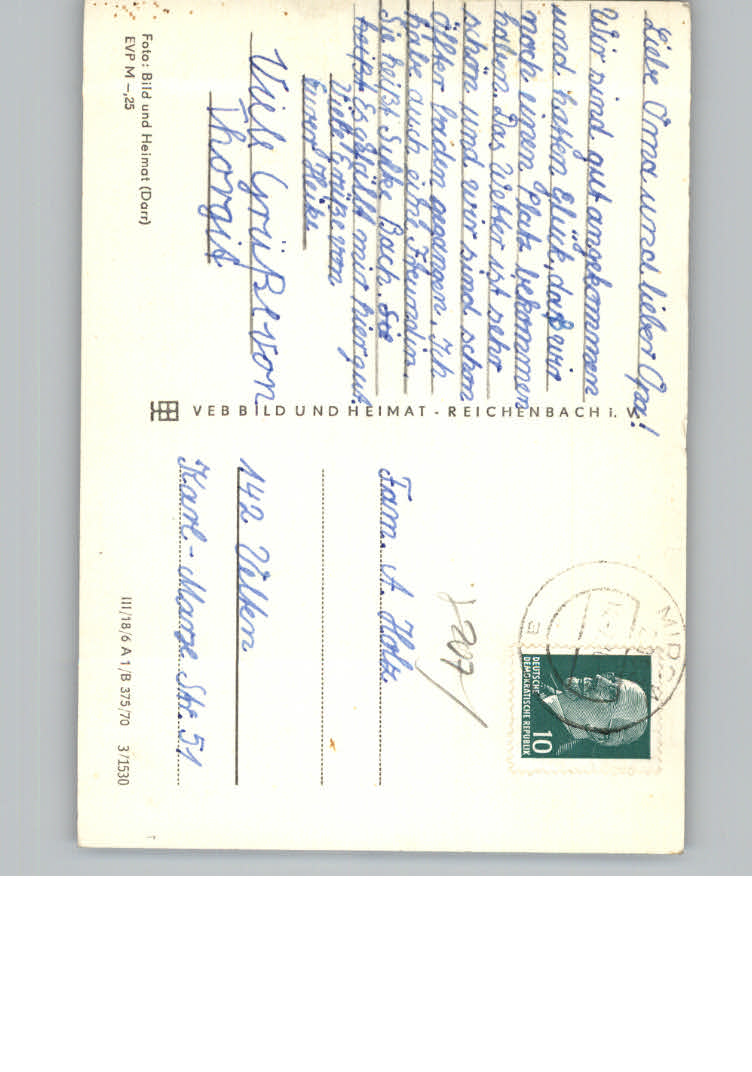 Liebe Oma und lieber Opa!
Wir sind gut angekommen
und hatten Glück, daß wir
noch einen Platz bekommen
haben. Das Wetter ist sehr
schön und wir sind schon
öfter baden gegangen. Ich
habe auch eine Freundin.
Sie heißt Silke Bach. Sie
Es gefällt mir hier gut.
Viele Grüße von
Eurer Heike
Viele Grüße von
Thorgit
Foto: Bild und Heimat (Darr)
EVP M –,25
VEB BILD UND HEIMAT - REICHENBACH i. V.
DEUTSCHE
DEMOKRATISCHE REPUBLIK
10
a
Fam. A. Holz
142 Velten
Karl-Marx Str. 51
III/18/6 A 1/B 375/70 3/1530